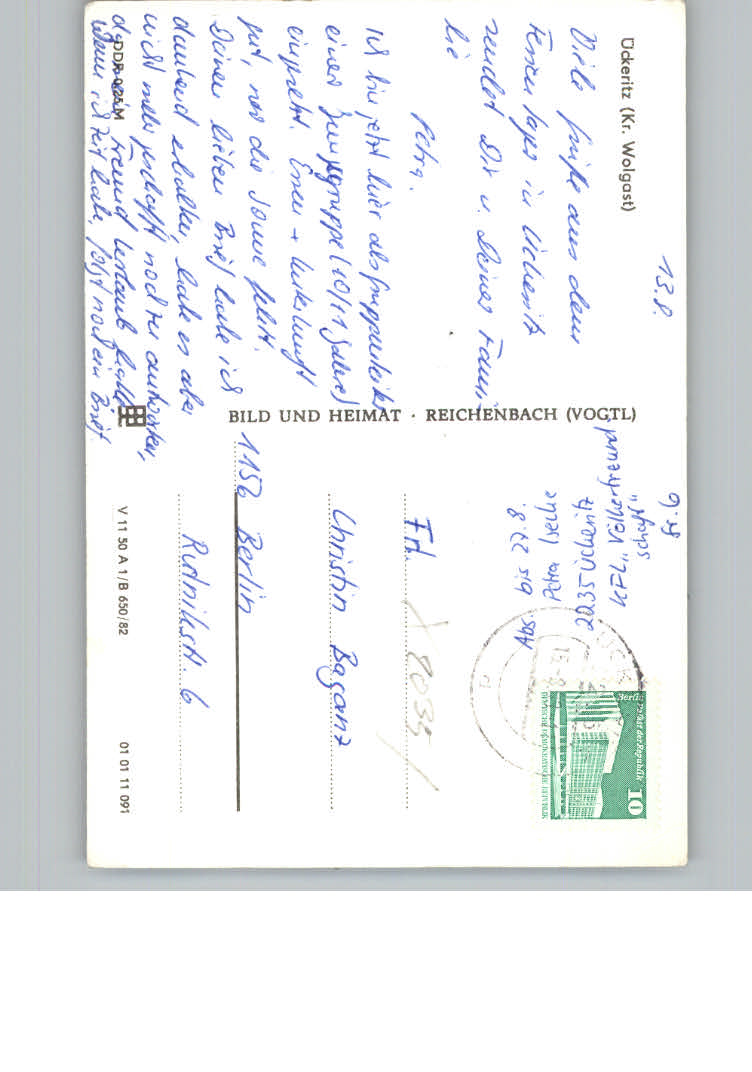 Ückeritz (Kr. Wolgast)
13.8.
Viele Grüße aus dem
Ferienlager in Ückeritz
sendet Dir u. Deiner Fami-
lie
Petra.
Ich bin jetzt hier als Gruppenleiter
einer Jungsgruppe (10/11 Jahre)
eingesetzt. Essen + Unterkunft
gut, nur die Sonne fehlt.
Deinen lieben Brief habe ich
dankend erhalten, habe es aber
nicht mehr geschafft noch zu antworten,
da mein Freund Urlaub hatte.
Wenn ich Zeit habe, folgt noch ein Brief.
DDR 025 M
BILD UND HEIMAT · REICHENBACH (VOGTL)
V 11 50 A 1/B 650/82
01 01 11 091
Gr. 6
Abs. bis 27.8.
Petra
2235 Ückeritz
KFL „Völkerfreund
schaft"
Berlin Palast der Republik
10
DEUTSCHE DEMOKRATISCHE REPUBLIK
Frl.
Christin Baganz
1156 Berlin
Rudnikstr. 6